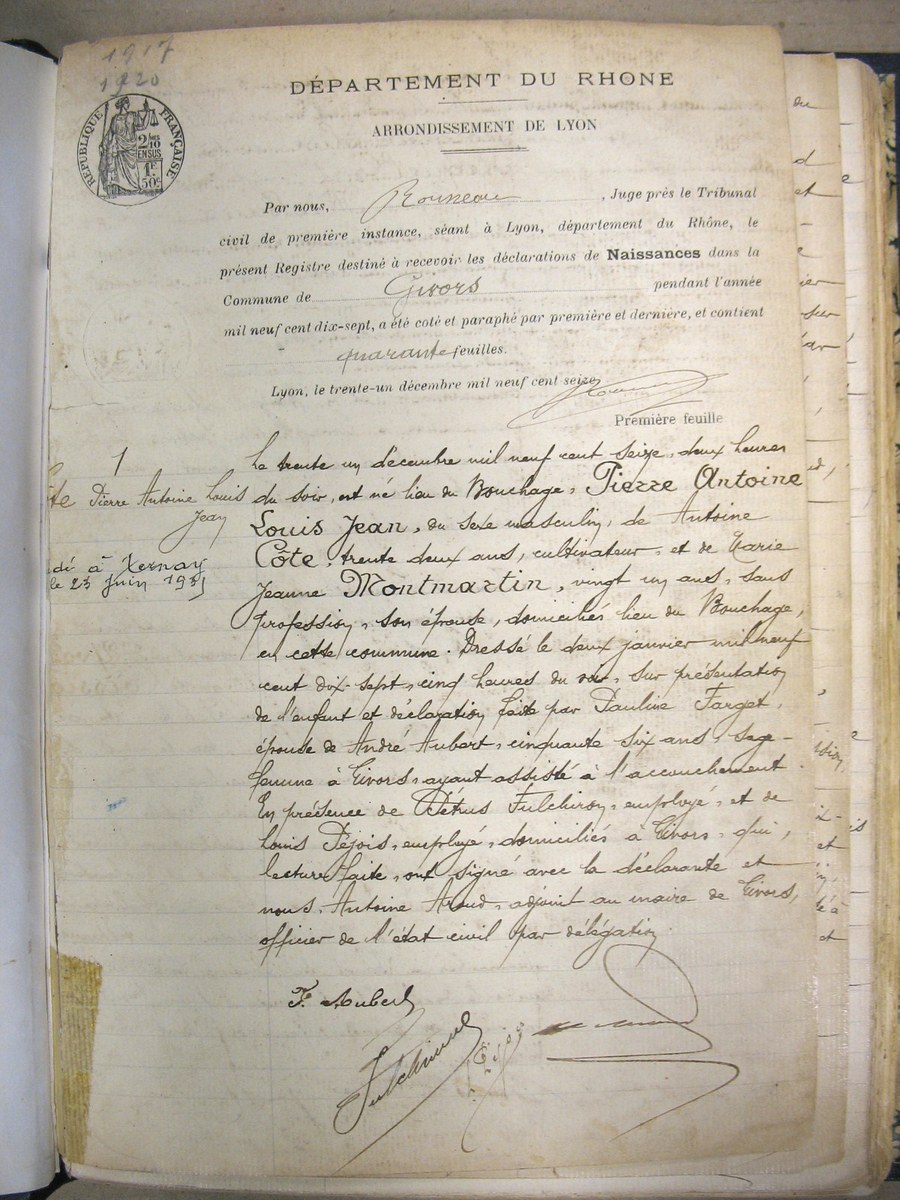 1917
1920
RÉPUBLIQUE FRANÇAISE
2/10
EN SUS
1F
50c
DÉPARTEMENT DU RHONE
ARRONDISSEMENT DE LYON
Par nous, Rousseau, Juge près le Tribunal
civil de première instance, séant à Lyon, département du Rhône, le
présent Registre destiné à recevoir les déclarations de Naissances dans la
Commune de Givors pendant l'année
mil neuf cent dix-sept, a été coté et paraphé par première et dernière, et contient
quarante feuilles.
Lyon, le trente-un décembre mil neuf cent seize
Première feuille
1
Pierre Antoine Louis
Jean
dé à
le 23 Juin
Le trente un décembre mil neuf cent seize, deux heures
du soir, est né lieu du Bouchage, Pierre Antoine
Louis Jean, du sexe masculin, de Antoine
Côte, trente deux ans, cultivateur, et de Marie
Jeanne Montmartin, vingt un ans, sans
profession, son épouse, domiciliés lieu du Bouchage,
en cette commune. Dressé le deux janvier mil neuf
cent dix-sept, cinq heures du soir, sur présentation
de l'enfant et déclaration faite par Pauline Farget,
épouse de André Aubert, cinquante six ans, sage-
femme à Givors, ayant assisté à l'accouchement.
En présence de Pétrus Fulchiron, employé, et de
Louis Déjois, employé, domiciliés à Givors, qui,
lecture faite, ont signé avec la déclarante et
nous, Antoine Aroud, adjoint au maire de Givors,
officier de l'état civil par délégation.
F. Aubert
Fulchiron